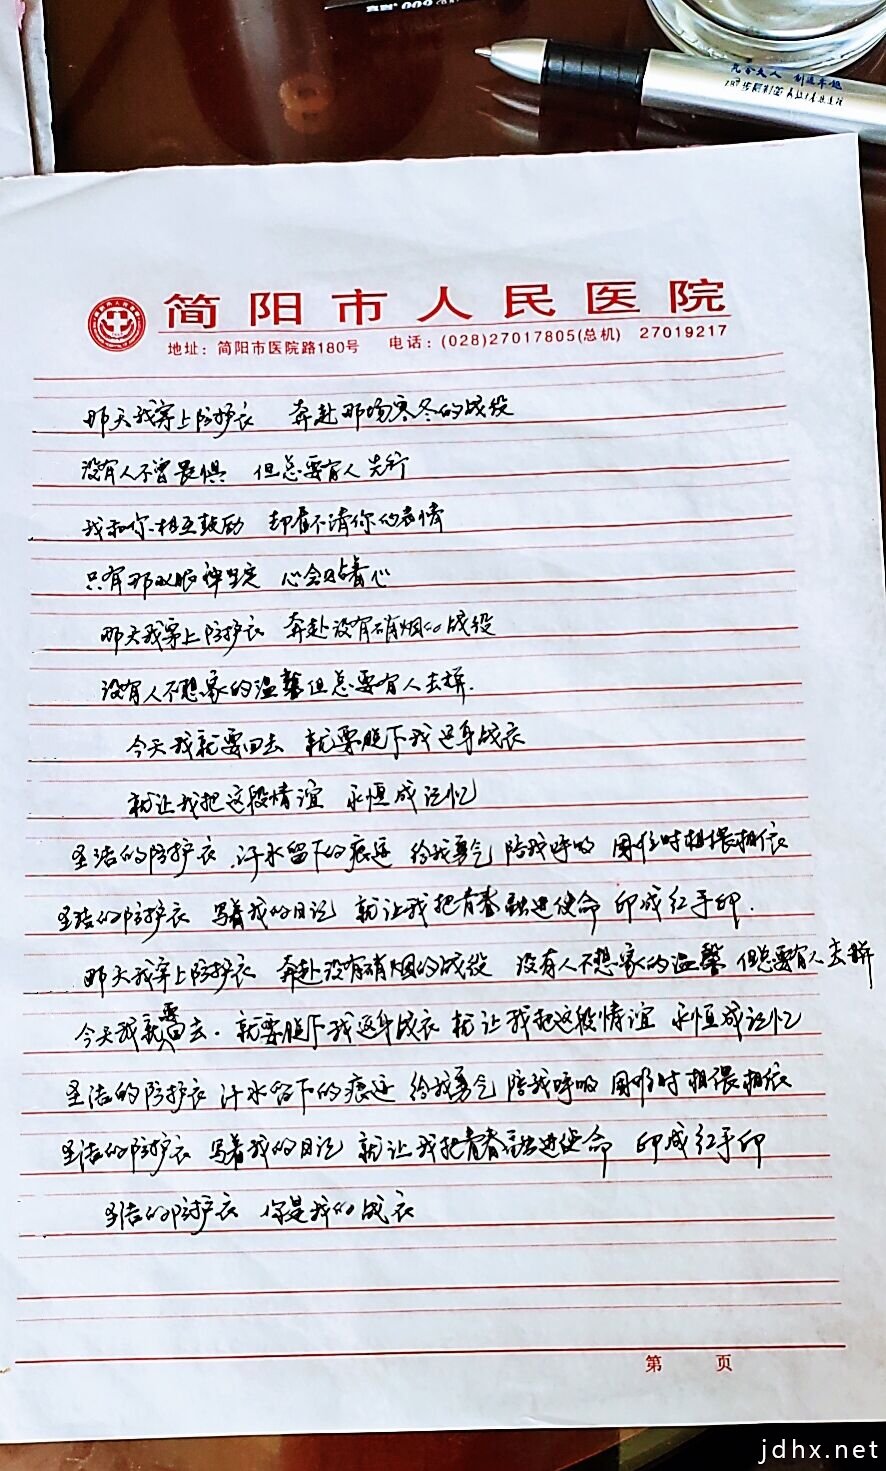 简阳市人民医院
地址：简阳市医院路180号 电话：(028)27017805(总机) 27019217
昨天我穿上防护衣 奔赴那场寒冬的战役
没有人不曾畏惧 但总要有人先行
我和你相互鼓励 却看不清你的表情
只有那双眼神坚定 心会贴着心
昨天我穿上防护衣 奔赴没有硝烟的战役
没有人不想家的温馨但总要有人去拼.
今天我就要回去 就要脱下我这身战衣
就让我把这段情谊 永恒成记忆
圣洁的防护衣 汗水留下的痕迹 给我勇气 陪我呼吸 困难时相偎相依
圣洁的防护衣 写着我的日记 就让我把青春融进使命 印成红手印.
昨天我穿上防护衣 奔赴没有硝烟的战役 没有人不想家的温馨 但总要有人去拼
今天我就要回去. 就要脱下我这身战衣 就让我把这段情谊 永恒成记忆
圣洁的防护衣 汗水留下的痕迹 给我勇气 陪我呼吸 困难时相偎相依
圣洁的防护衣 写着我的日记 就让我把青春融进使命 印成红手印
圣洁的防护衣 你是我的战衣
第 页
jdhx.net